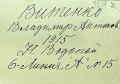 Витенко
Владимир Антонов
1915
Н. Водопой
6-Линия "А" № 15